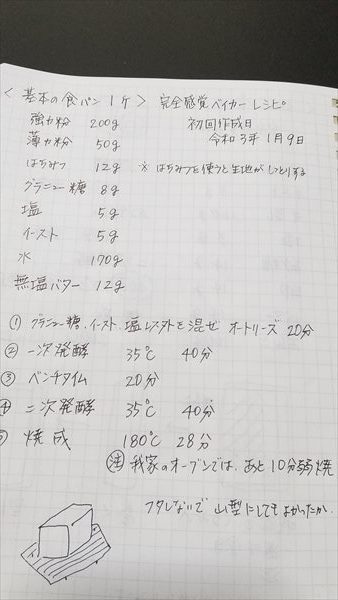 ＜基本の食パン 1ケ＞ 完全感覚ベイカー レシピ
強力粉 200g 初回作成日
薄力粉 50g 令和3年1月9日
はちみつ 12g ※はちみつを使うと生地がしっとりする
グラニュー糖 8g
塩 5g
イースト 5g
水 170g
無塩バター 12g
① グラニュー糖、イースト、塩以外を混ぜ オートリーズ 20分
② 一次発酵 35℃ 40分
③ ベンチタイム 20分
④ 二次発酵 35℃ 40分
焼成 180℃ 28分
注 我家のオーブンでは、あと10分
フタしないで 山型にしてもよかったか、